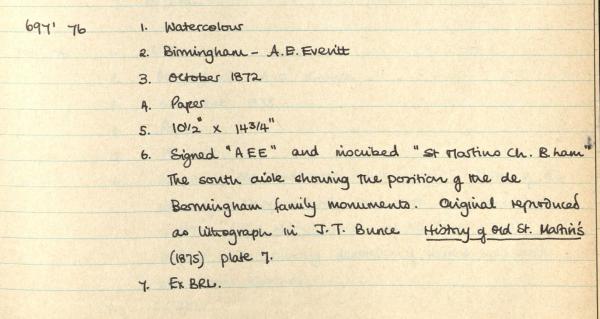 697' 76 1. Watercolour
2. Birmingham - A.E. Everitt
3. October 1872
4. Paper
5. 10 1/2" x 14 3/4"
6. Signed "AEE" and inscribed "St Martins Ch. B.ham"
The south aisle showing the position of the de
Bermingham family monuments. Original reproduced
as lithograph in J.T. Bunce History of Old St. Martin's
(1875) plate 7.
7. Ex BRL.